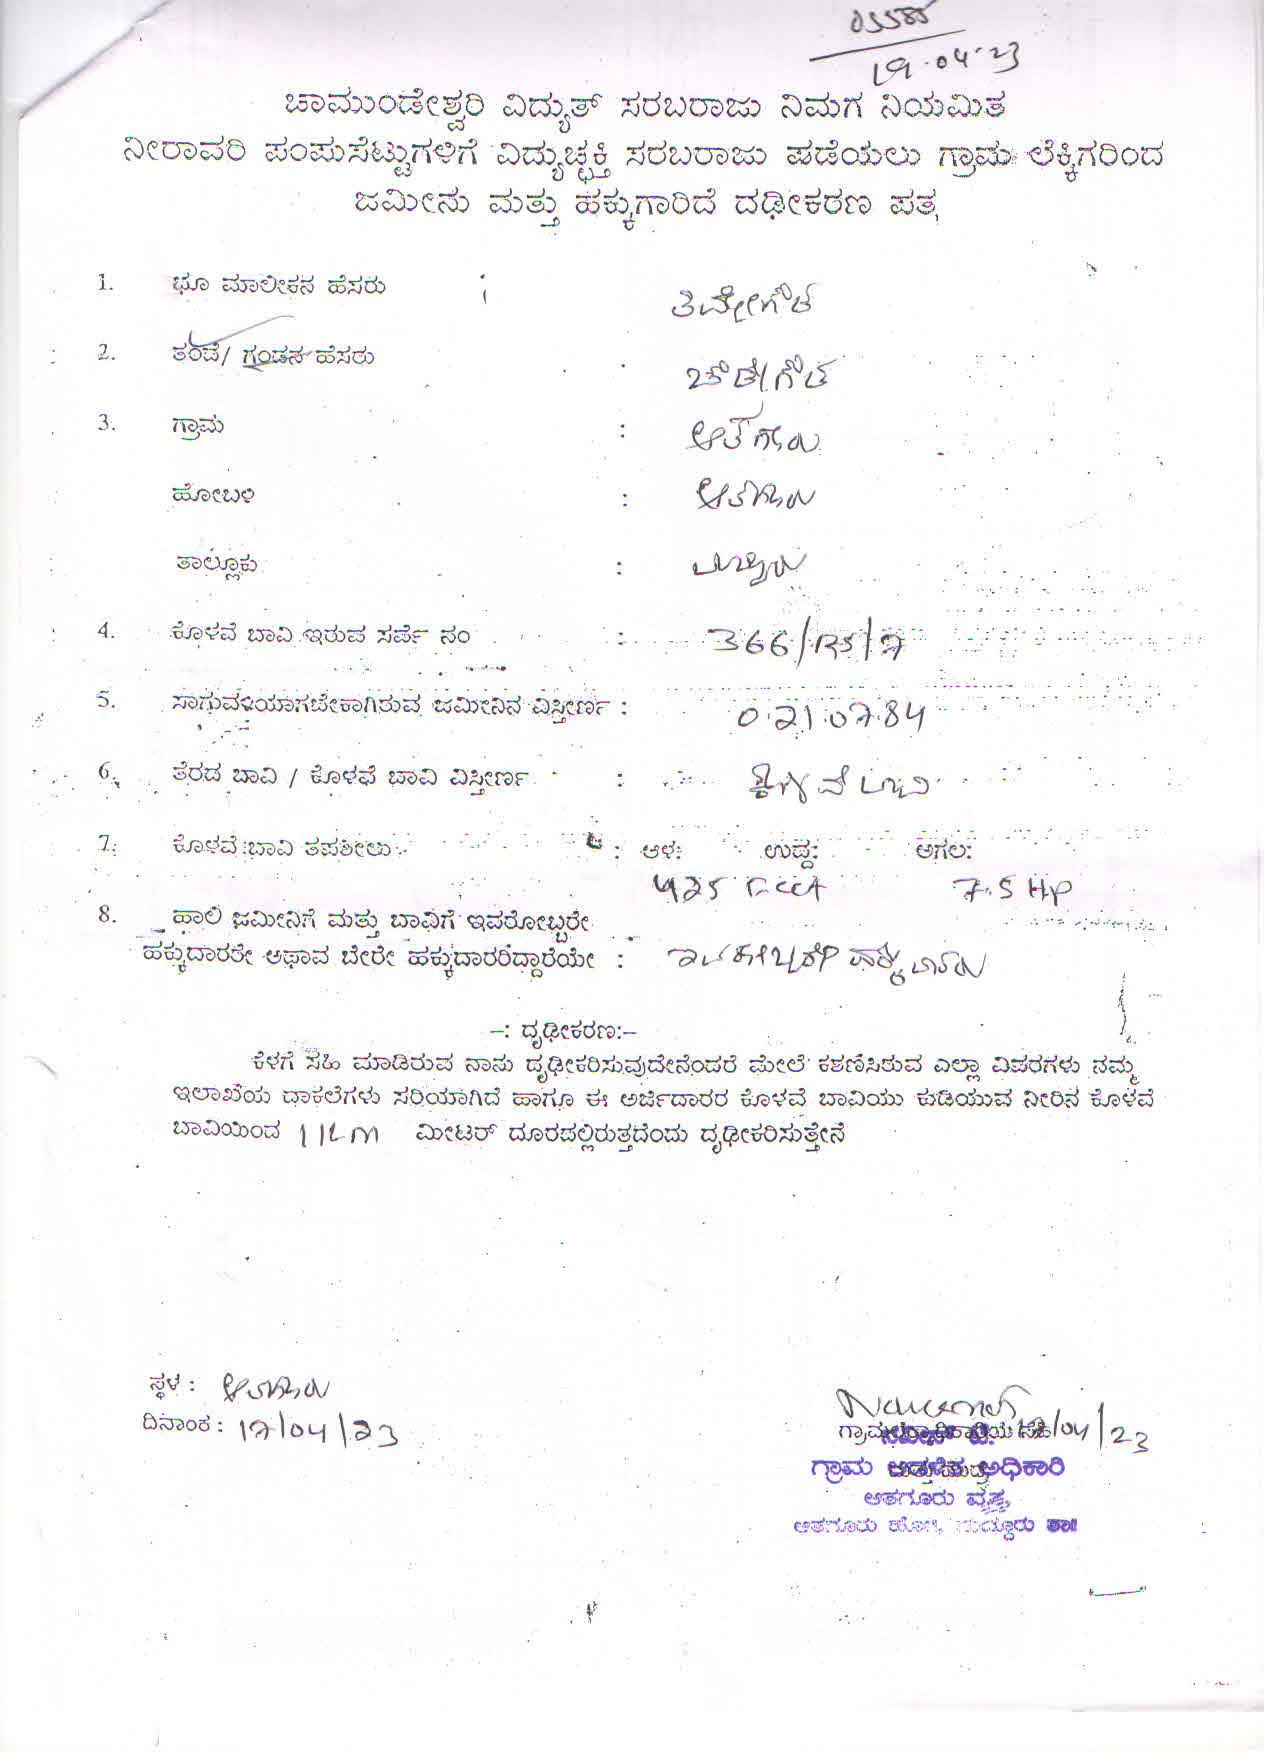 19.04.23
ಚಾಮುಂಡೇಶ್ವರಿ ವಿದ್ಯುತ್ ಸರಬರಾಜು ನಿಮಗ ನಿಯಮಿತ
ನೀರಾವರಿ ಪಂಪುಸೆಟ್ಟುಗಳಿಗೆ ವಿದ್ಯುಚ್ಛಕ್ತಿ ಸರಬರಾಜು ಪಡೆಯಲು ಗ್ರಾಮ ಲೆಕ್ಕಿಗರಿಂದ
ಜಮೀನು ಮತ್ತು ಹಕ್ಕುಗಾರಿಕೆ ದಢೀಕರಣ ಪತ್ರ
1. ಭೂ ಮಾಲೀಕನ ಹೆಸರು : ತಿಮ್ಮೇಗೌಡ
2. ತಂದೆ/ ಗಂಡನ ಹೆಸರು : ಚೌಡೇಗೌಡ
3. ಗ್ರಾಮ : ಆತಗೂರು
ಹೋಬಳಿ : ಆತಗೂರು
ತಾಲ್ಲೂಕು : ಮದ್ದೂರು
4. ಕೊಳವೆ ಬಾವಿ ಇರುವ ಸರ್ವೆ ನಂ : 366/
5. ಸಾಗುವಳಿಯಾಗಬೇಕಾಗಿರುವ ಜಮೀನಿನ ವಿಸ್ತೀರ್ಣ : 0.21.07.84
6. ತೆರದ ಬಾವಿ / ಕೊಳವೆ ಬಾವಿ ವಿಸ್ತೀರ್ಣ : ಕೊಳವೆ ಬಾವಿ
7. ಕೊಳವೆ ಬಾವಿ ತಪಶೀಲು : ಆಳ: ಉದ್ದ: ಅಗಲ:
425 Feet 7.5 HP
8. ಹಾಲಿ ಜಮೀನಿಗೆ ಮತ್ತು ಬಾವಿಗೆ ಇವರೋಬ್ಬರೇ
ಹಕ್ಕುದಾರರೇ ಅಥಾವ ಬೇರೇ ಹಕ್ಕುದಾರರಿದ್ದಾರೆಯೇ : ಇವರೊಬ್ಬರೇ ಹಕ್ಕುದಾರರು
–: ದೃಢೀಕರಣ:–
ಕೆಳಗೆ ಸಹಿ ಮಾಡಿರುವ ನಾನು ದೃಢೀಕರಿಸುವುದೇನೆಂದರೆ ಮೇಲೆ ಕಾಣಿಸಿರುವ ಎಲ್ಲಾ ವಿವರಗಳು ನಮ್ಮ
ಇಲಾಖೆಯ ದಾಕಲೆಗಳು ಸರಿಯಾಗಿದೆ ಹಾಗೂ ಈ ಅರ್ಜಿದಾರರ ಕೊಳವೆ ಬಾವಿಯು ಕುಡಿಯುವ ನೀರಿನ ಕೊಳವೆ
ಬಾವಿಯಿಂದ ಮೀಟರ್ ದೂರದಲ್ಲಿರುತ್ತದೆಂದು ದೃಢೀಕರಿಸುತ್ತೇನೆ
ಸ್ಥಳ : ಆತಗೂರು
ದಿನಾಂಕ : 17/04/23
17/04/23
ಗ್ರಾಮ ಆಡಳಿತ ಅಧಿಕಾರಿ
ಆತಗೂರು ವೃತ್ತ,
ಆತಗೂರು ಹೋಬಳಿ, ಮದ್ದೂರು ತಾ॥